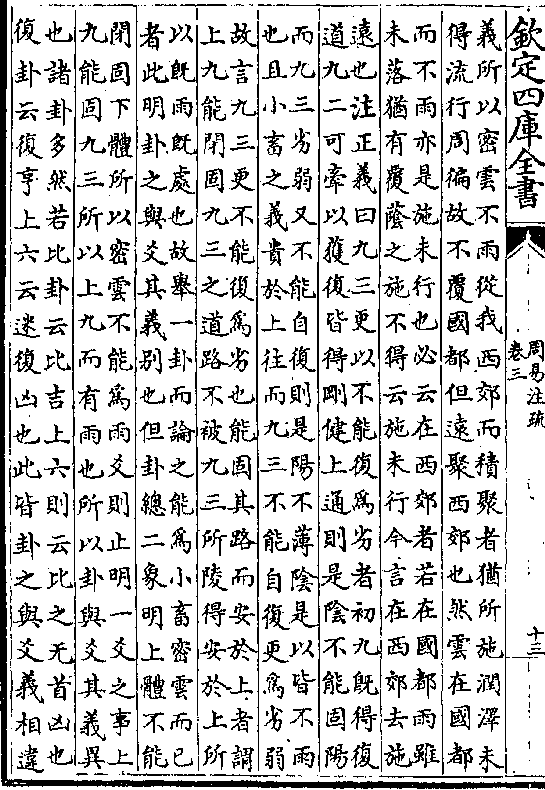 欽定四庫全書
周易注疏
卷三
十三
義所以密雲不雨從我西郊而積聚者猶所施潤澤未
得流行周徧故不覆國都但遠聚西郊也然雲在國都
而不雨亦是施未行也必云在西郊者若在國都雨雖
未落猶有覆蔭之施不得云施未行今言在西郊去施
遠也注正義曰九三更以不能復為劣者初九既得復
道九二可牽以獲復皆得剛健上通則是陰不能固陽
而九三劣弱又不能自復則是陽不薄陰是以皆不雨
也且小畜之義貴於上往而九三不能自復更為劣弱
故言九三更不能復為劣也能固其路而安於上者謂
上九能閉固九三之道路不被九三所陵得安於上所
以既雨既處也故舉一卦而論之能為小畜密雲而已
者此明卦之與爻其義別也但卦總二象明上體不能
閉固下體所以密雲不能為雨爻則止明一爻之事上
九能固九三所以上九而有雨也所以卦與爻其義異
也諸卦多然若比卦云比吉上六則云比之无首凶也
復卦云復亨上六云迷復凶也此皆卦之與爻義相違